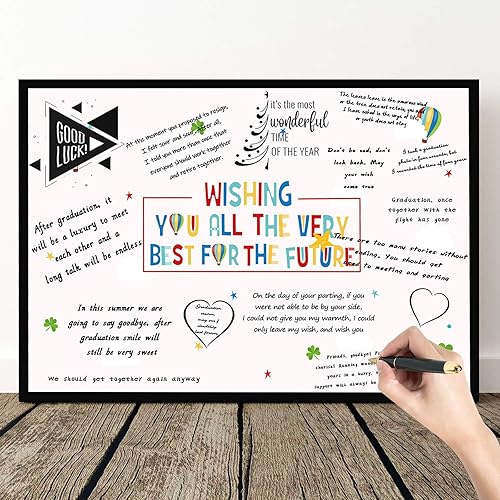 GOOD
LUCK!
At the moment you proposed to resign,
I felt sour and sour after all,
I told you more than once that
everyone should work together
and retire together.
it's the most
wonderful
TIME
OF THE YEAR
The leaves leave, is the
or the tree does not retain, you and
I leave school is the
or youth does not stay
I took a graduation
photo in four seconds, but
I recorded the time of four years
Don't be sad, don't
look back, May
your wish
come true
Graduation, once
together With the
fight has gone
After graduation, it
will be a luxury to meet
each other and a
long talk will be endless
WISHING
YOU ALL THE VERY
BEST FOR THE FUTURE
There are too many stories without
ending. You should get
used to meeting and parting
In this summer we are
going to say goodbye, after
graduation smile will
still be very sweet
Graduation
means,
may our
friendship
last forever
On the day of your parting, if you
were not able to be by your side,
I could not give you my warmth, I could
only leave my wish, and wish you
Friends, goodbye!
charcoal Running
years, I
Support will always be
We should get together again anyway